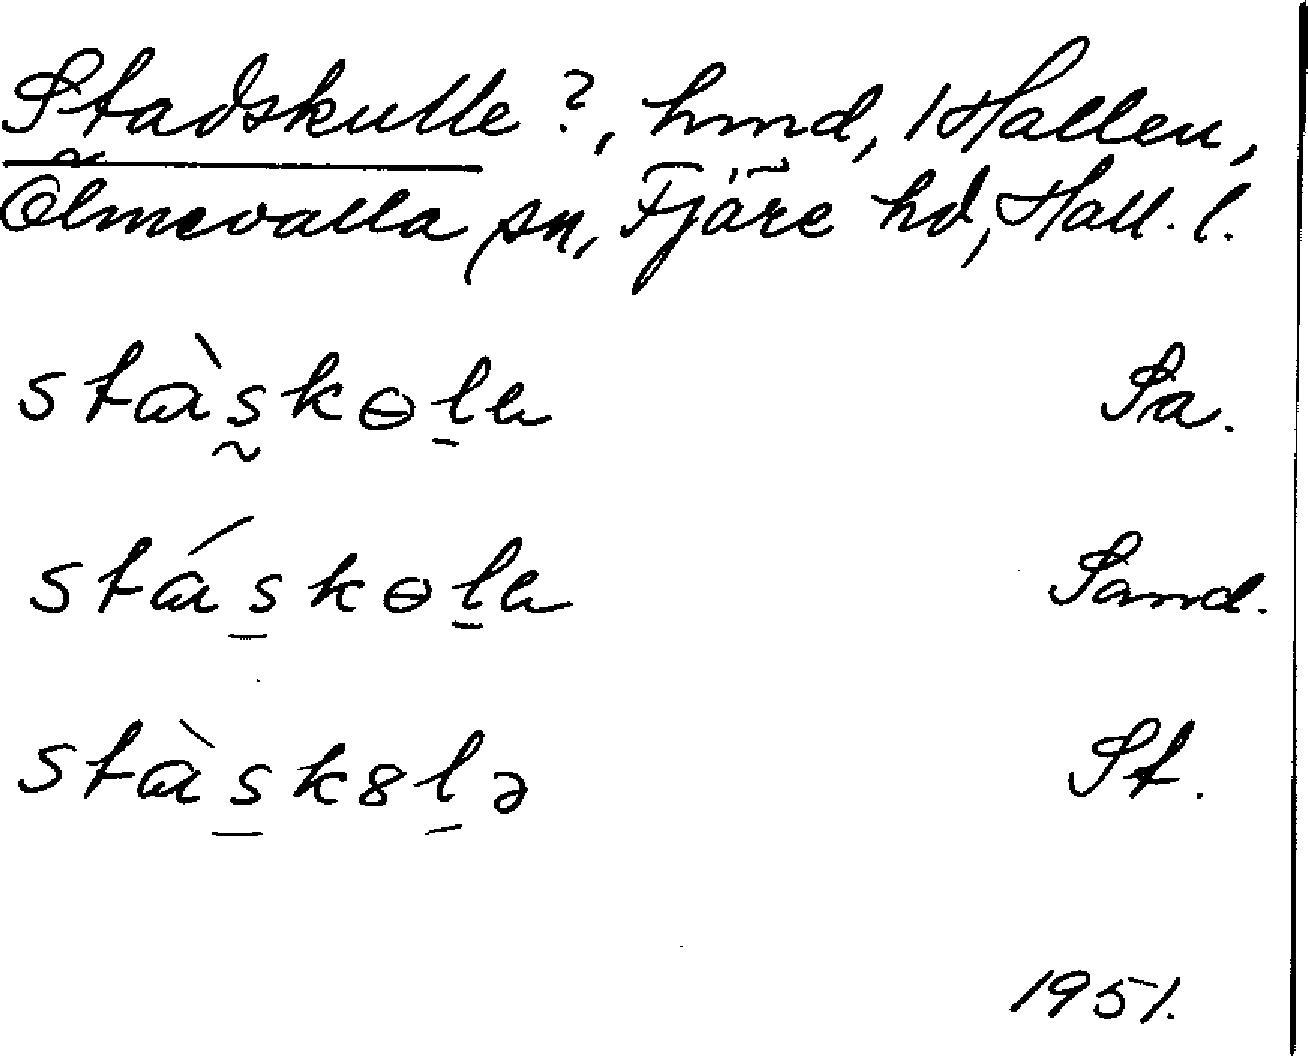 Stadskulle ?, hmd, Hallen,
Ölmevalla sn, Fjäre hd, Hall. l.
stɑ̀s̰kɵl̠ɐ Sa.
stɑ́s̠kɵl̠ɐ Sand.
stɑ̀s̠k8l̠ə St.
1951.